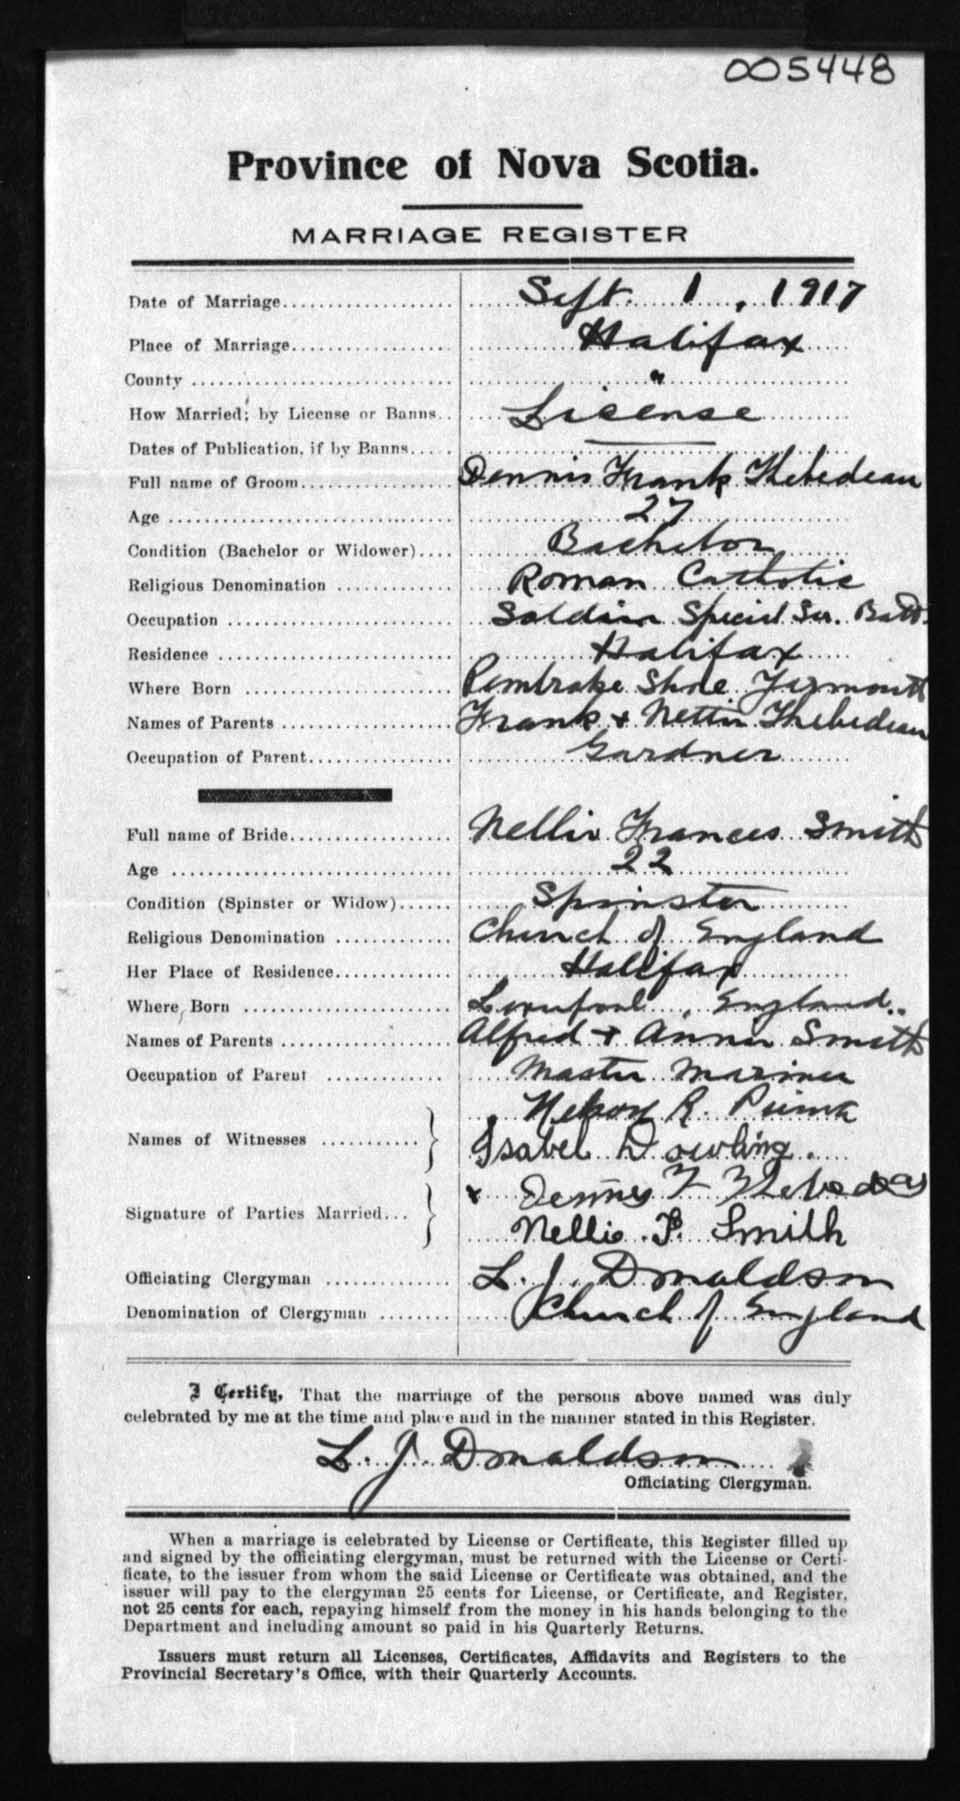 005448
Province of Nova Scotia.
MARRIAGE REGISTER
Date of Marriage Sept. 1, 1917
Place of Marriage Halifax
County "
How Married; by License or Banns License
Dates of Publication, if by Banns
Full name of Groom Dennis Frank Thebedeau
Age 27
Condition (Bachelor or Widower) Bachelor
Religious Denomination Roman Catholic
Occupation Soldier Special Ser. Batt.
Residence Halifax
Where Born Pembroke Shore Yarmouth
Names of Parents Frank + Nettie Thebedeau
Occupation of Parent Gardner
Full name of Bride Nellie Frances Smith
Age 22
Condition (Spinster or Widow) Spinster
Religious Denomination Church of England
Her Place of Residence Halifax
Where Born Liverpool, England
Names of Parents Alfred + Annie Smith
Occupation of Parent Master Mariner
R.
Names of Witnesses Isabel Dowling.
x
Signature of Parties Married Nellie F. Smith
Officiating Clergyman L. J. Donaldson
Denomination of Clergyman Church of England
I Certify, That the marriage of the persons above named was duly
celebrated by me at the time and place and in the manner stated in this Register.
L. J. Donaldson
Officiating Clergyman.
When a marriage is celebrated by License or Certificate, this Register filled up
and signed by the officiating clergyman, must be returned with the License or Certi-
ficate, to the issuer from whom the said License or Certificate was obtained, and the
issuer will pay to the clergyman 25 cents for License, or Certificate, and Register,
not 25 cents for each, repaying himself from the money in his hands belonging to the
Department and including amount so paid in his Quarterly Returns.
Issuers must return all Licenses, Certificates, Affidavits and Registers to the
Provincial Secretary's Office, with their Quarterly Accounts.